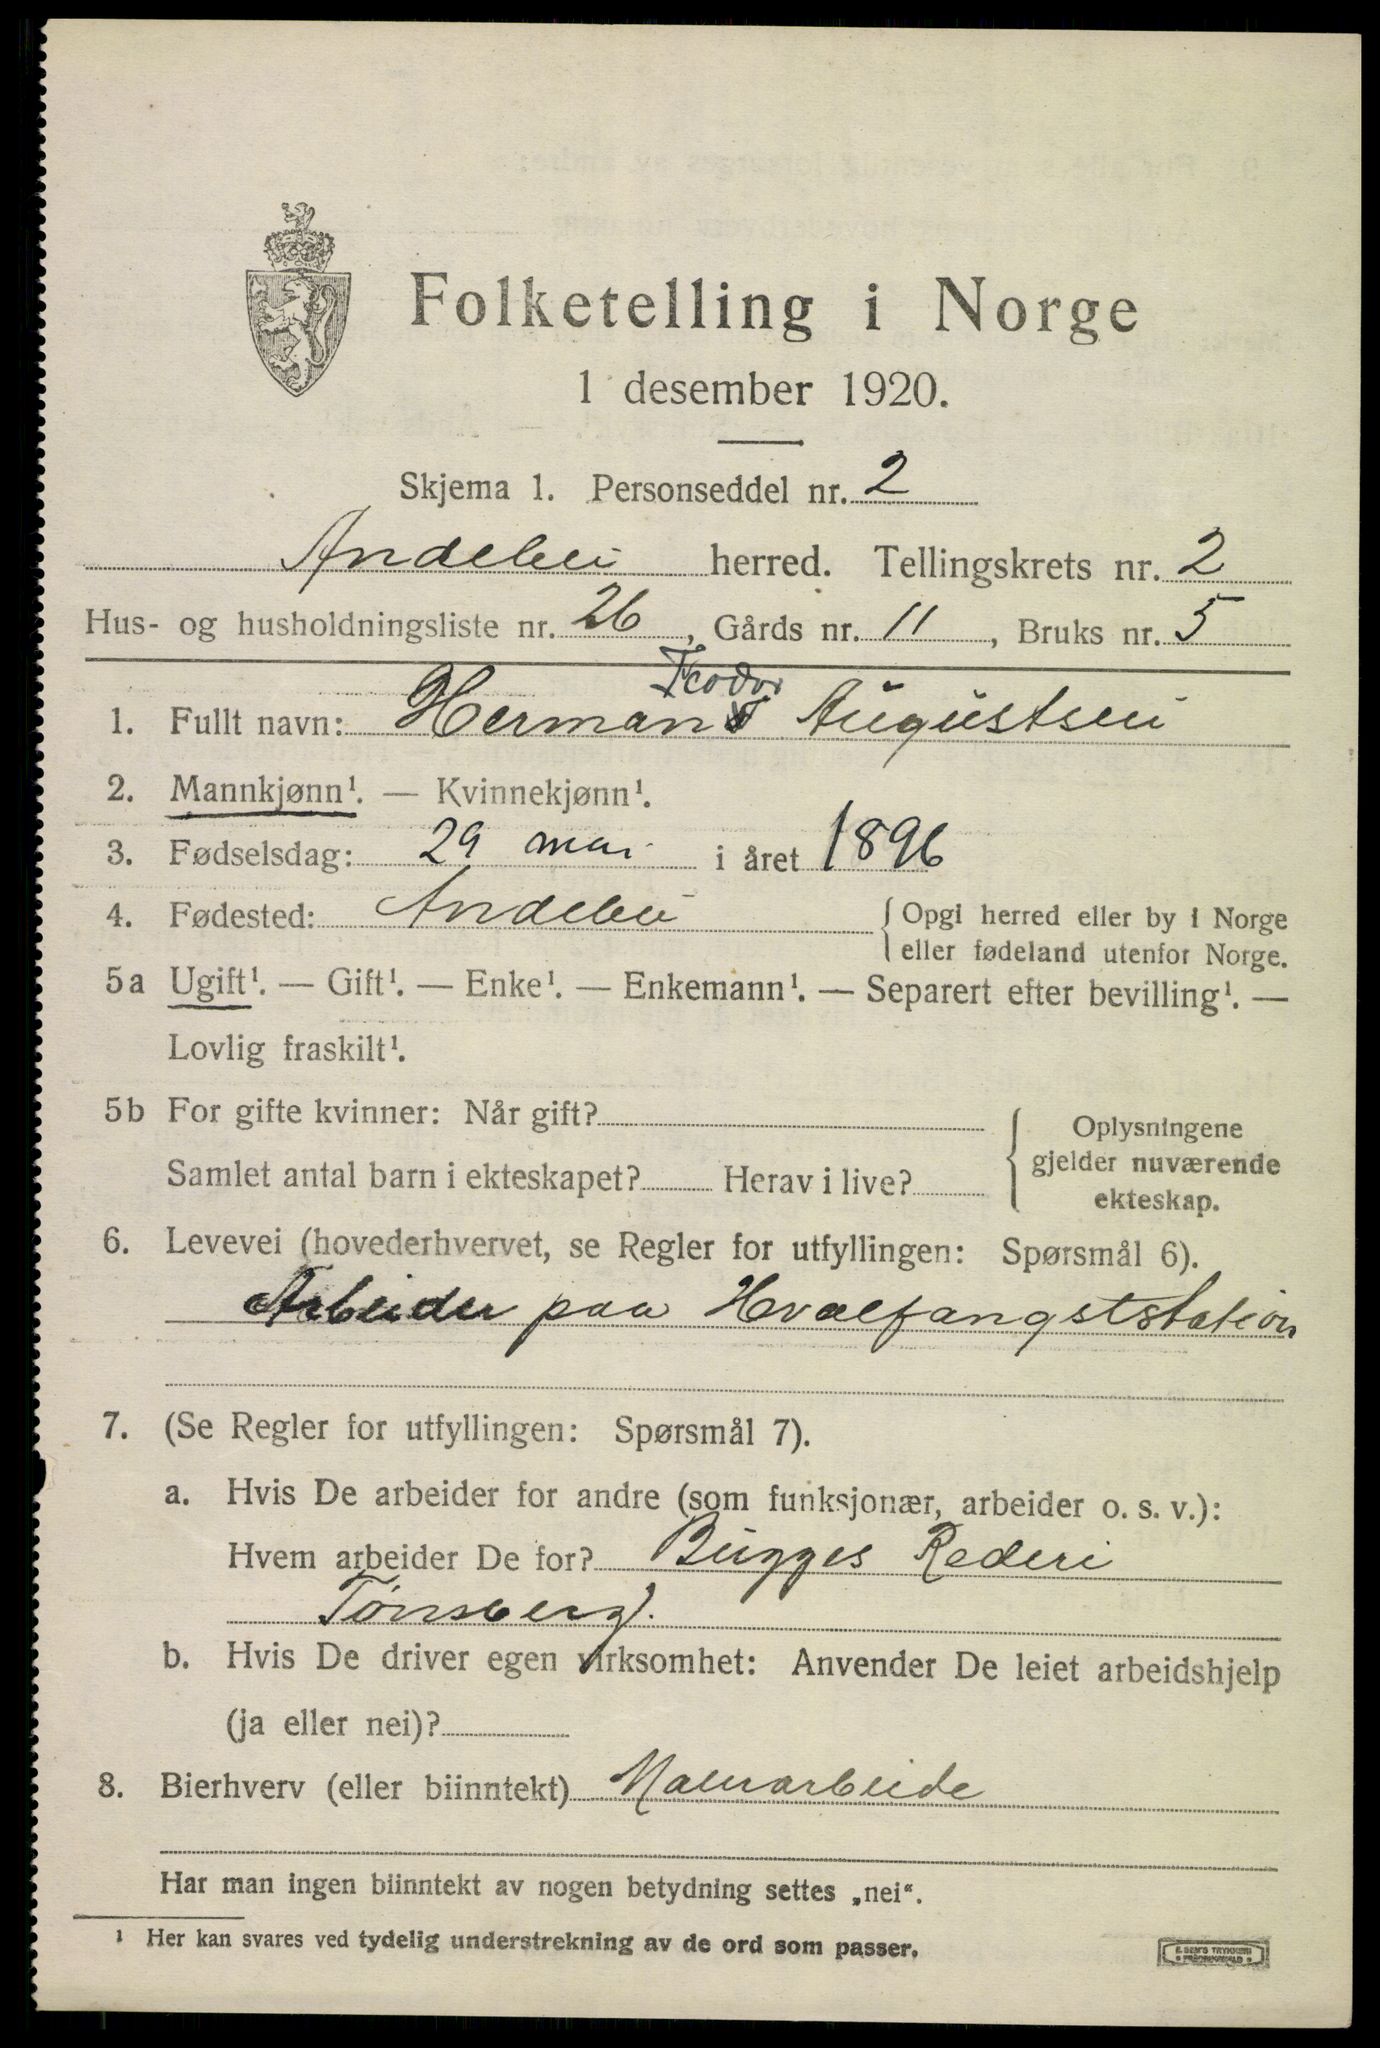 Folketelling i Norge
1 desember 1920.
Skjema 1. Personseddel nr. 2
Andebu herred. Tellingskrets nr. 2
Hus- og husholdningsliste nr. 26, Gårds nr. 11, Bruks nr. 5
Teodor
1. Fullt navn: Herman T Augustsen
2. Mannkjønn¹. — Kvinnekjønn¹.
3. Fødselsdag: 29 mai i året 1896
4. Fødested: Andebu { Opgi herred eller by i Norge
eller fødeland utenfor Norge.
5a Ugift¹. — Gift¹. — Enke¹. — Enkemann¹. — Separert efter bevilling¹. —
Lovlig fraskilt¹.
5b For gifte kvinner: Når gift? { Oplysningene
gjelder nuværende
Samlet antal barn i ekteskapet? Herav i live?
ekteskap.
6. Levevei (hovederhvervet, se Regler for utfyllingen: Spørsmål 6).
Arbeider paa Hvalfangststation
7. (Se Regler for utfyllingen: Spørsmål 7).
a. Hvis De arbeider for andre (som funksjonær, arbeider o. s. v.):
Hvem arbeider De for? Bugges Rederi
Tønsberg.
b. Hvis De driver egen virksomhet: Anvender De leiet arbeidshjelp
(ja eller nei)?
8. Bierhverv (eller biinntekt) Malerarbeide
Har man ingen biinntekt av nogen betydning settes „nei“.
¹ Her kan svares ved tydelig understrekning av de ord som passer.
E. SEM'S TRYKKERI
• FREDRIKSHALD •